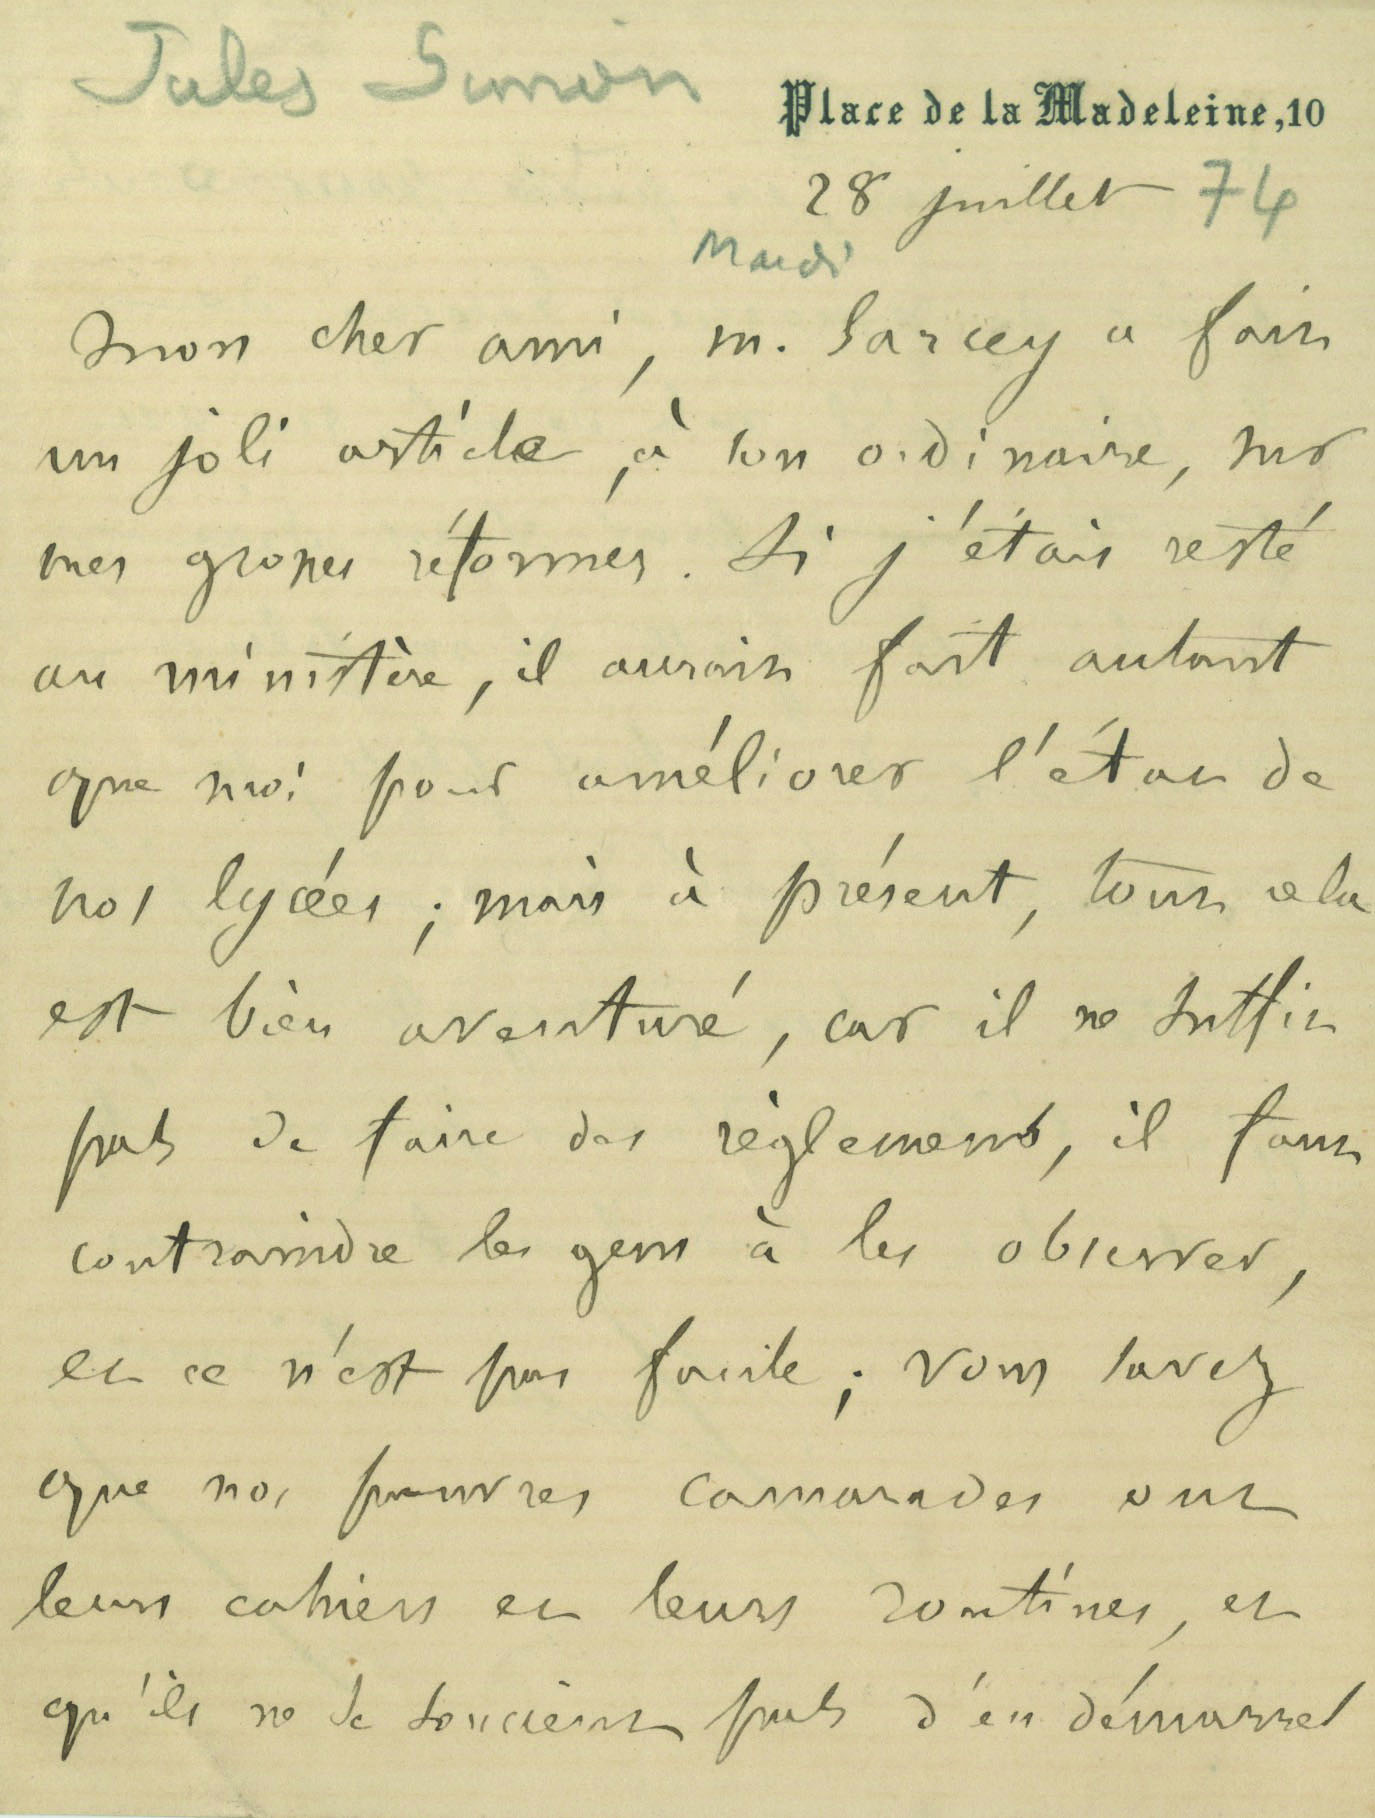 Jules Simon
Place de la Madeleine, 10
28 juillet 74
Mardi
Mon cher ami, M. Sarcey a fait
un joli article, à son ordinaire, sur
mes grosses réformes. Si j'étais resté
au ministère, il aurait fait autant
que moi pour améliorer l'état de
nos lycées ; mais à présent, tout cela
est bien aventuré, car il ne suffit
pas de faire des règlements, il faut
contraindre les gens à les observer,
et ce n'est pas facile ; vous savez
que nos pauvres camarades ont
leurs cahiers et leurs routines, et
qu'ils ne se soucient pas d'en démarrer